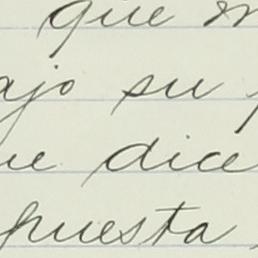 que
ajo su
ue dice
puesta